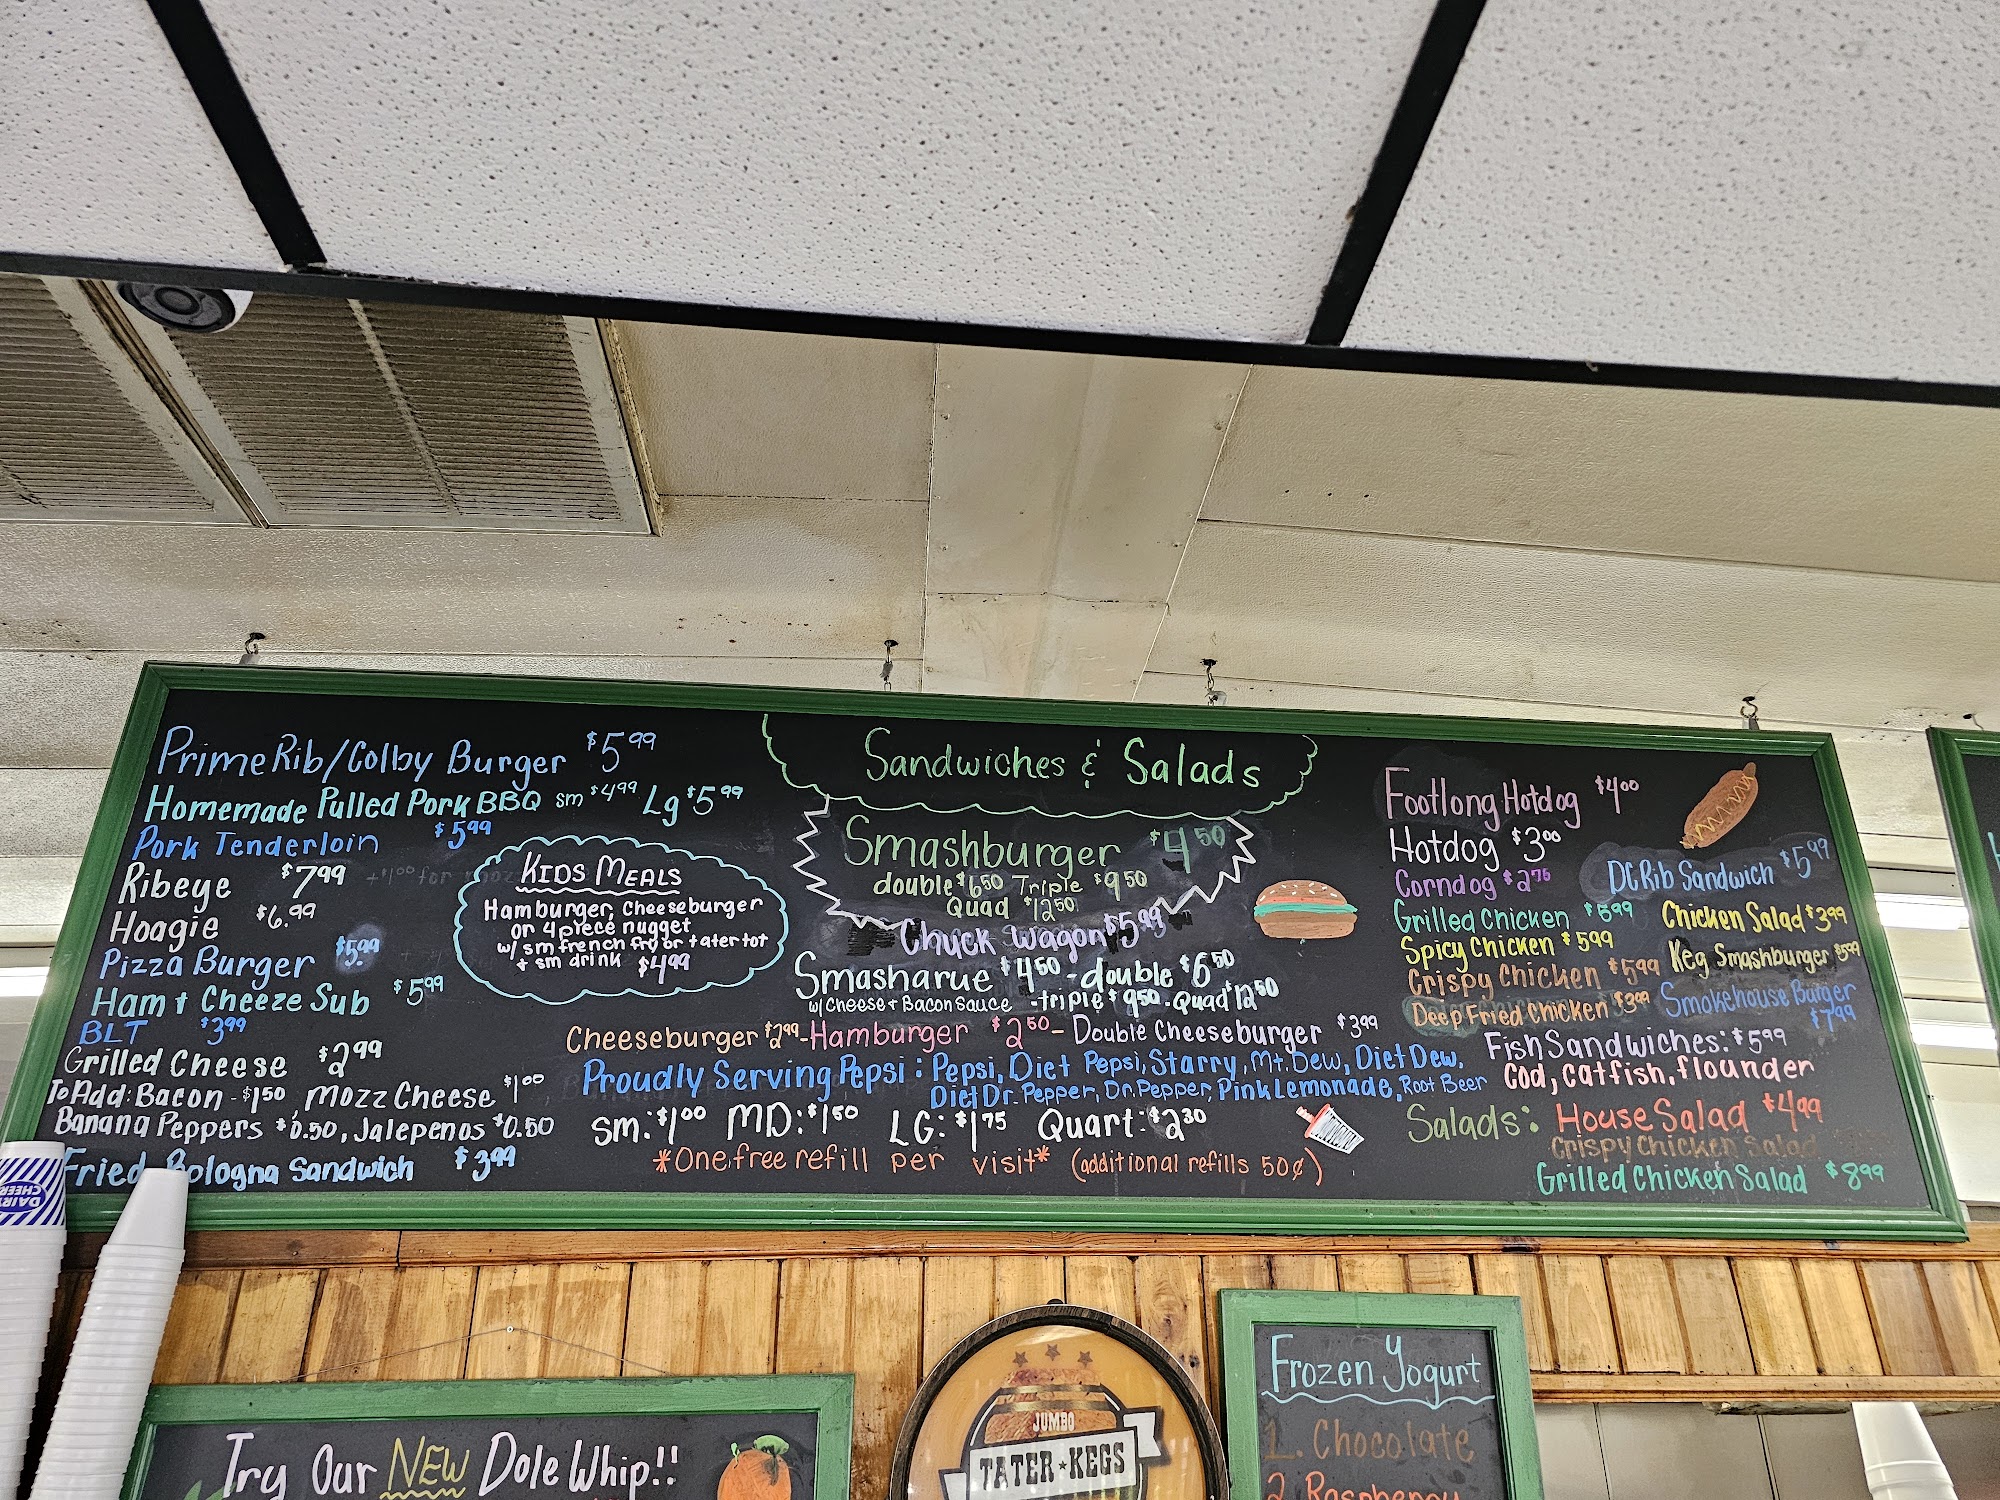 Sandwiches & Salads
Prime Rib/Colby Burger $5.99
Homemade Pulled Pork BBQ sm $4.99 Lg $5.99
Pork Tenderloin $5.99
Ribeye $7.99
Hoagie $6.99
Pizza Burger $5.99
Ham + Cheeze Sub $5.99
BLT $3.99
Grilled Cheese $2.99
To Add: Bacon - $1.50, Mozz Cheese $1.00
Banana Peppers $0.50, Jalepenos $0.50
Fried Bologna Sandwich $3.99
KIDS MEALS
Hamburger, Cheeseburger
or 4 piece nugget
w/ sm french fry or tater tot
+ sm drink $4.99
Smashburger $4.50
double $6.50 Triple $9.50
Quad $12.50
Chuck Wagon $5.99
Smasharue $4.50 - double $6.50
w/ Cheese + Bacon Sauce - triple $9.50 - Quad $12.50
Cheeseburger $2.99 - Hamburger $2.50 - Double Cheeseburger $3.99
Proudly Serving Pepsi: Pepsi, Diet Pepsi, Starry, Mt. Dew, Diet Dew,
Diet Dr. Pepper, Dr. Pepper, Pink Lemonade, Root Beer
sm: $1.00 MD: $1.50 LG: $1.75 Quart: $2.30
*One free refill per visit* (additional refills 50¢)
Footlong Hotdog $4.00
Hotdog $3.00
Corndog $2.75
DC Rib Sandwich $5.99
Grilled Chicken $5.99
Chicken Salad $3.99
Spicy Chicken $5.99
Keg Smashburger $5.99
Crispy Chicken $5.99
Deep Fried Chicken $3.99
Smokehouse Burger
$7.99
Fish Sandwiches: $5.99
Cod, Catfish, flounder
Salads: House Salad $4.99
Crispy Chicken Salad
Grilled Chicken Salad $8.99
DAIRY
CHEER
Try Our NEW Dole Whip!!
JUMBO
TATER KEGS
Frozen Yogurt
1. Chocolate
2. Raspberry